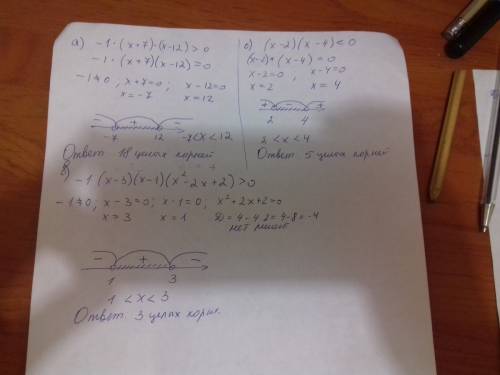 а) -1·(x+7)·(x-12)>0
-1·(x+7)(x-12)=0
-1≠0, x+7=0, x-12=0
x=-7 x=12
- + -
-7 12 -7<x<12
Ответ 18 целых корней
б) (x-2)(x-4)<0
(x-2)*(x-4)=0
x-2=0, x-4=0
x=2 x=4
+ - +
2 4
2<x<4
Ответ 5 целых корней
в) -1(x-3)(x-1)(x²-2x+2)>0
-1≠0, x-3=0; x-1=0; x²+2x+2=0
x=3 x=1 D=4-4·2=4-8=-4
нет решит
- + -
1 3
1<x<3
Ответ 3 целых корн.